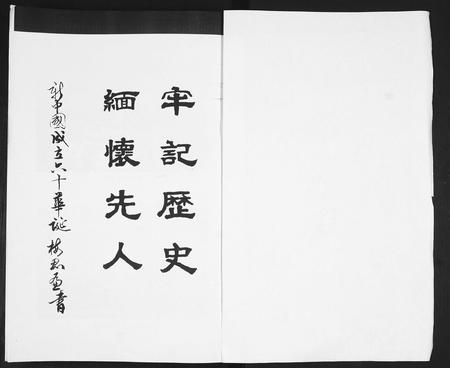 牢記歷史
緬懷先人
新中國成立六十華誕